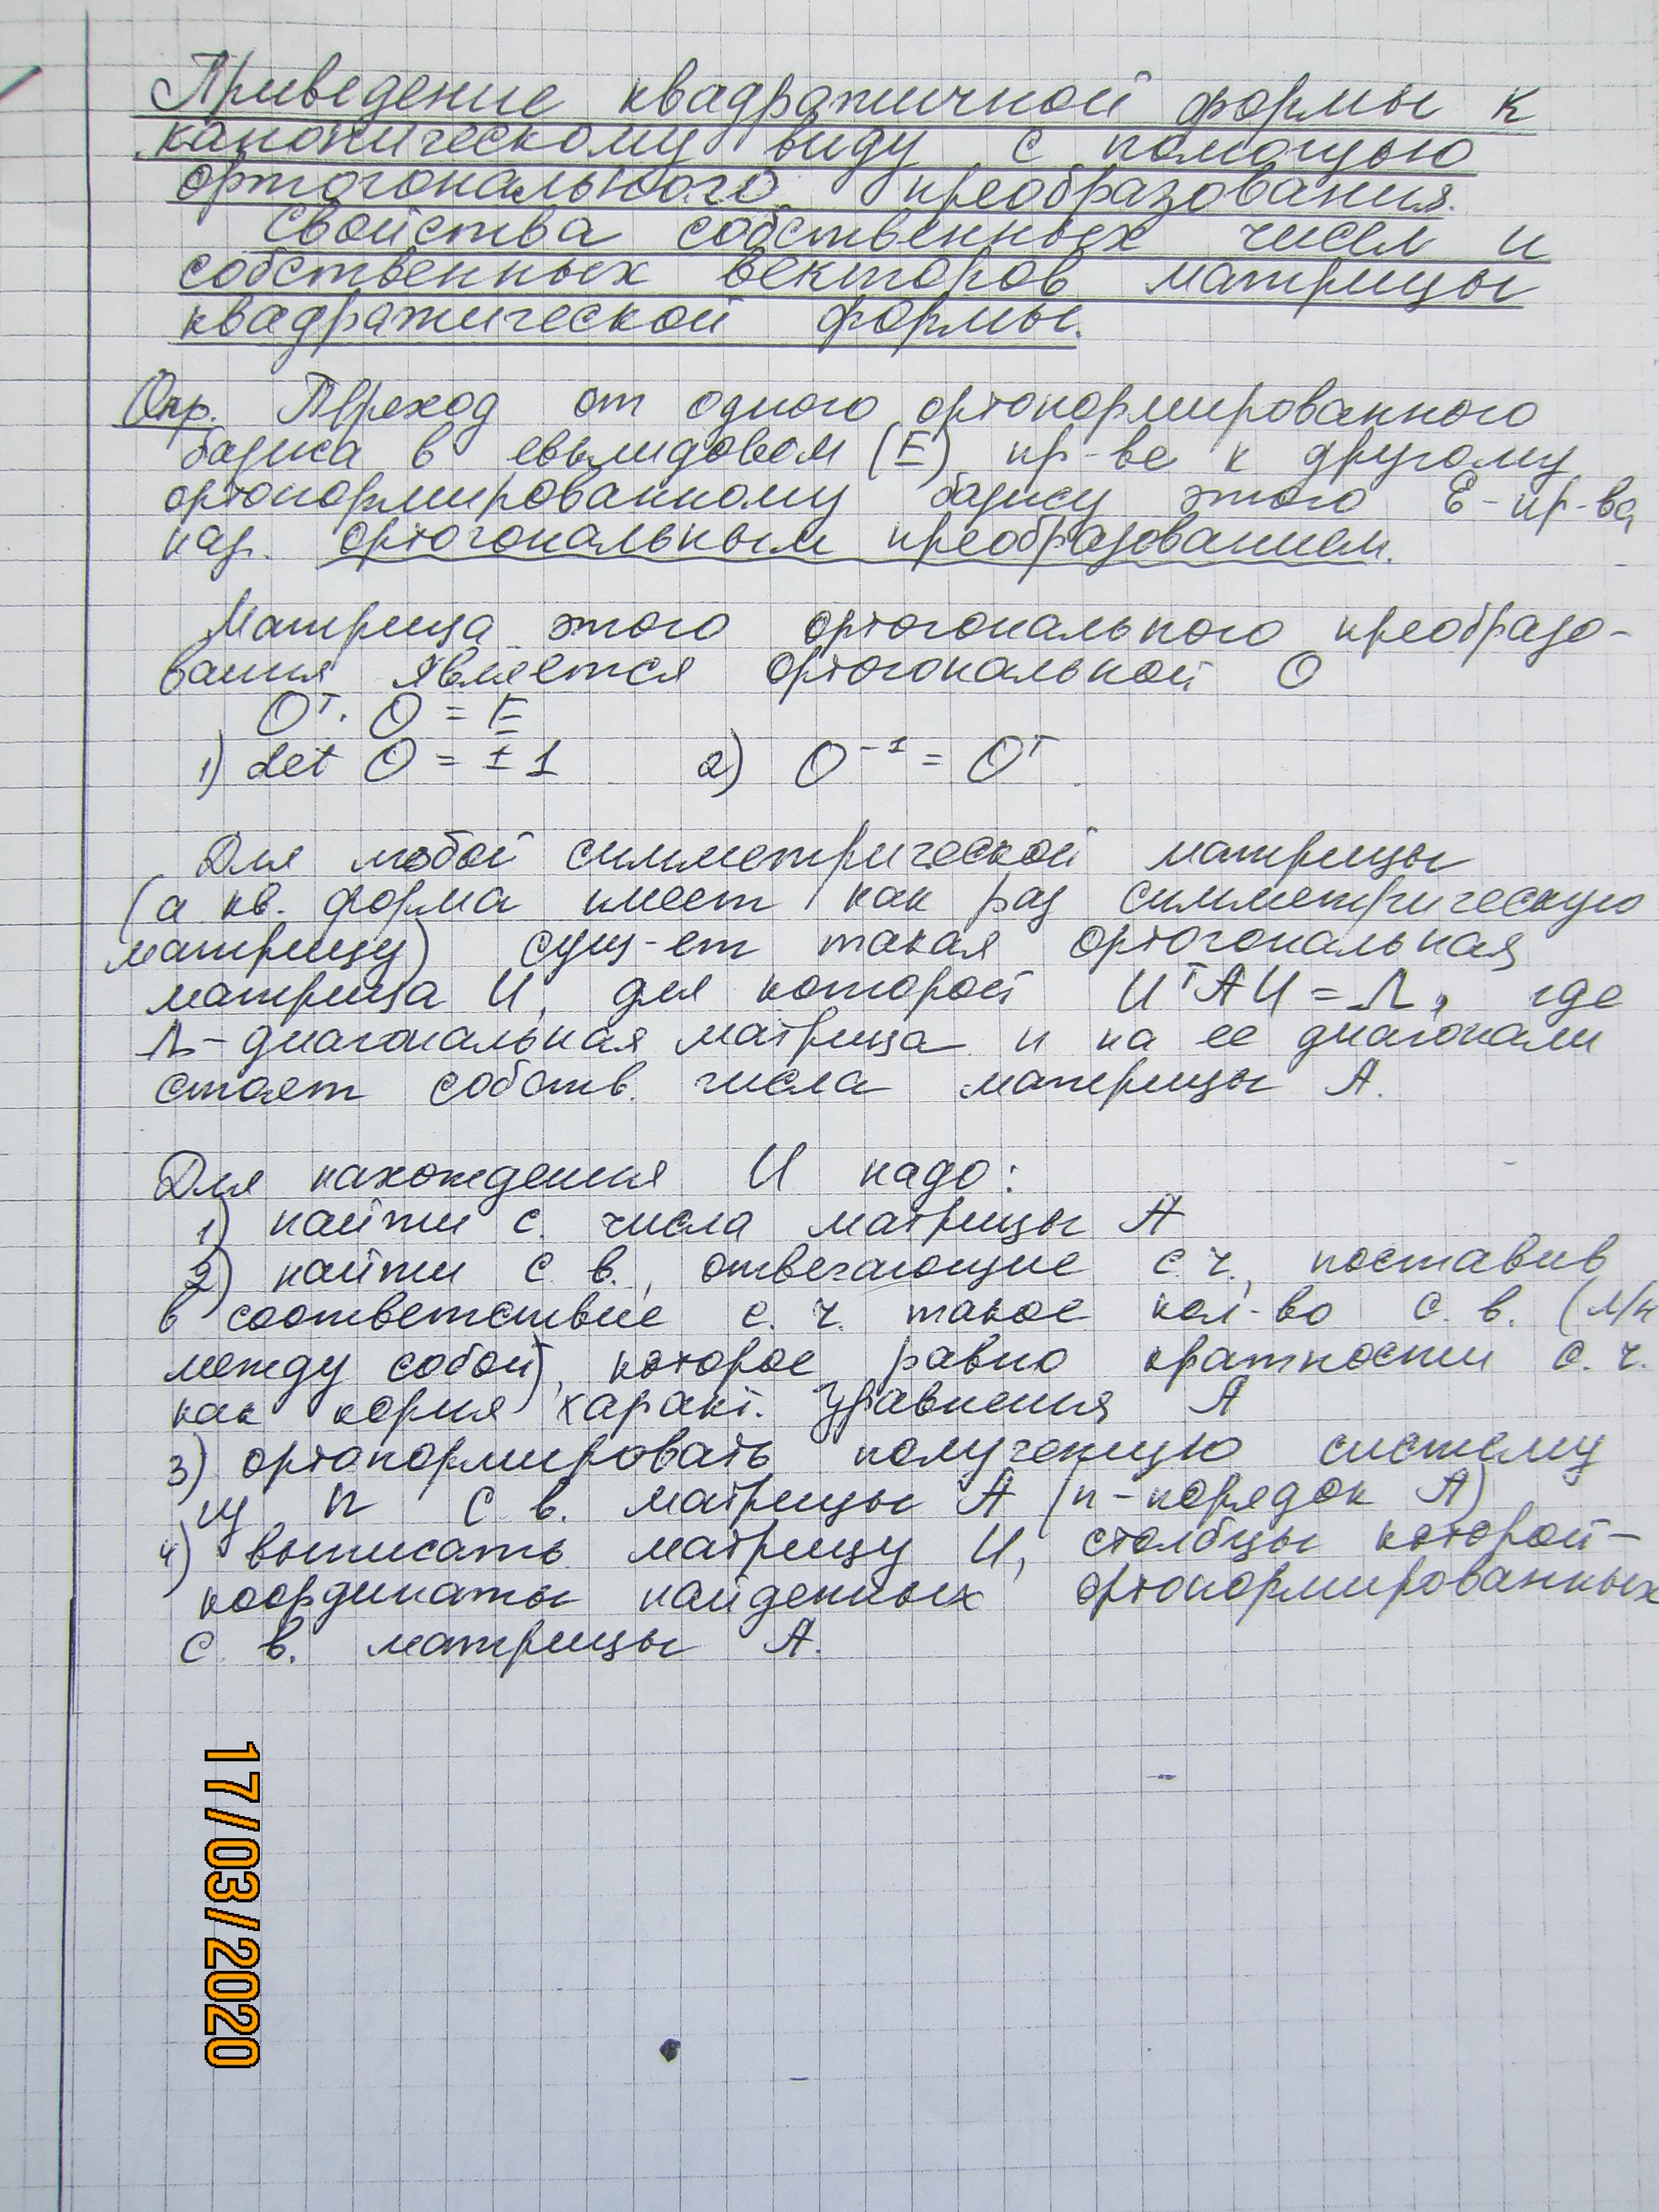 Приведение квадратичной формы к
каноническому виду с помощью
ортогонального преобразования.
Свойства собственных чисел и
собственных векторов матрицы
квадратической формы.
Опр. Переход от одного ортонормированного
базиса в евклидовом (E) пр-ве к другому
ортонормированному базису этого E-пр-ва
наз. ортогональным преобразованием.
Матрица этого ортогонального преобразо-
вания является ортогональной O
Oᵀ·O = E
1) det O = ±1 2) O⁻¹ = Oᵀ.
Для любой симметрической матрицы
(а кв. форма имеет как раз симметрическую
матрицу) сущ-ет такая ортогональная
матрица U, для которой UᵀAU = Λ, где
Λ-диагональная матрица и на ее диагонали
стоят собств. числа матрицы A.
Для нахождения U надо:
1) найти с. числа матрицы A
2) найти с. в., отвечающие с.ч., поставив
в соответствие с.ч. такое кол-во с. в. (л/н
между собой), которое равно кратности с.ч.
как корня характ. уравнения A
3) ортонормировать полученную систему
из n с в. матрицы A (n-порядок A)
4) выписать матрицу U, столбцы которой-
координаты найденных ортонормированных
с. в. матрицы A.
17/03/2020